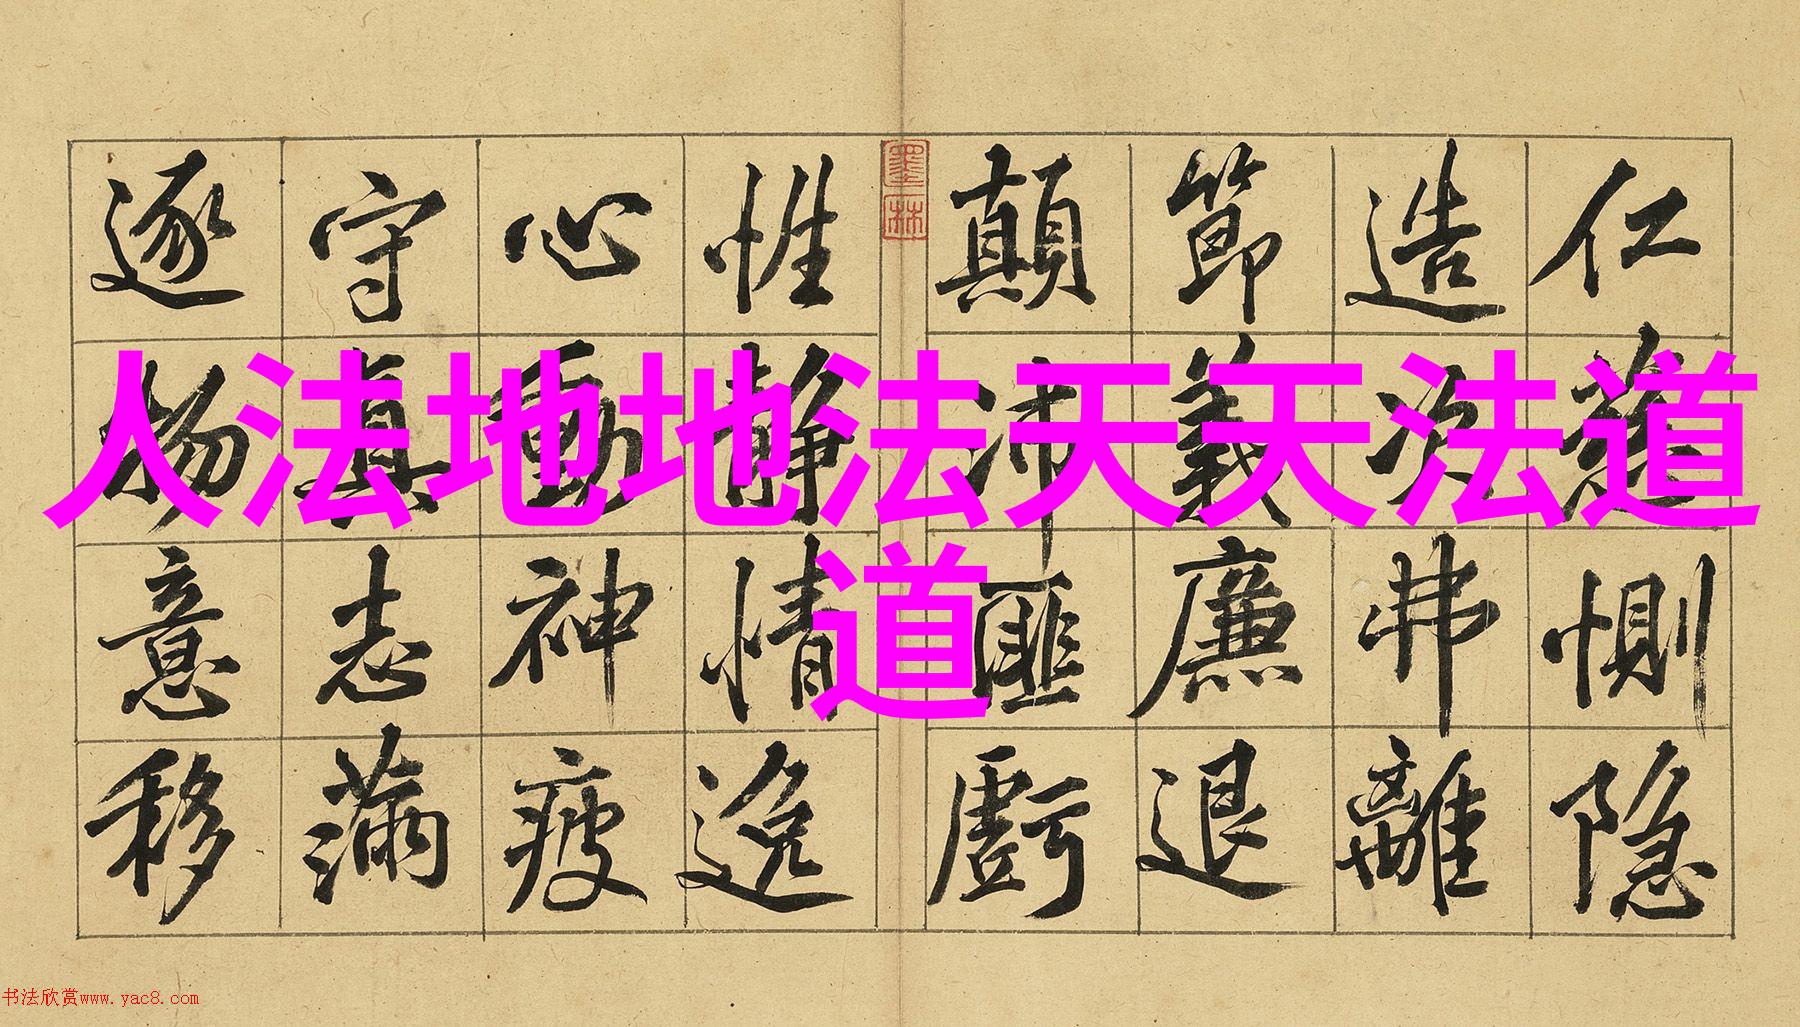 人法地地法天天法道
道
仁慈惻隐
造次弗離
節義廉退
顛沛匪虧
墨林
性静情逸
心動神疲
守真志滿
逐物意移
书法欣赏www.yac8.com